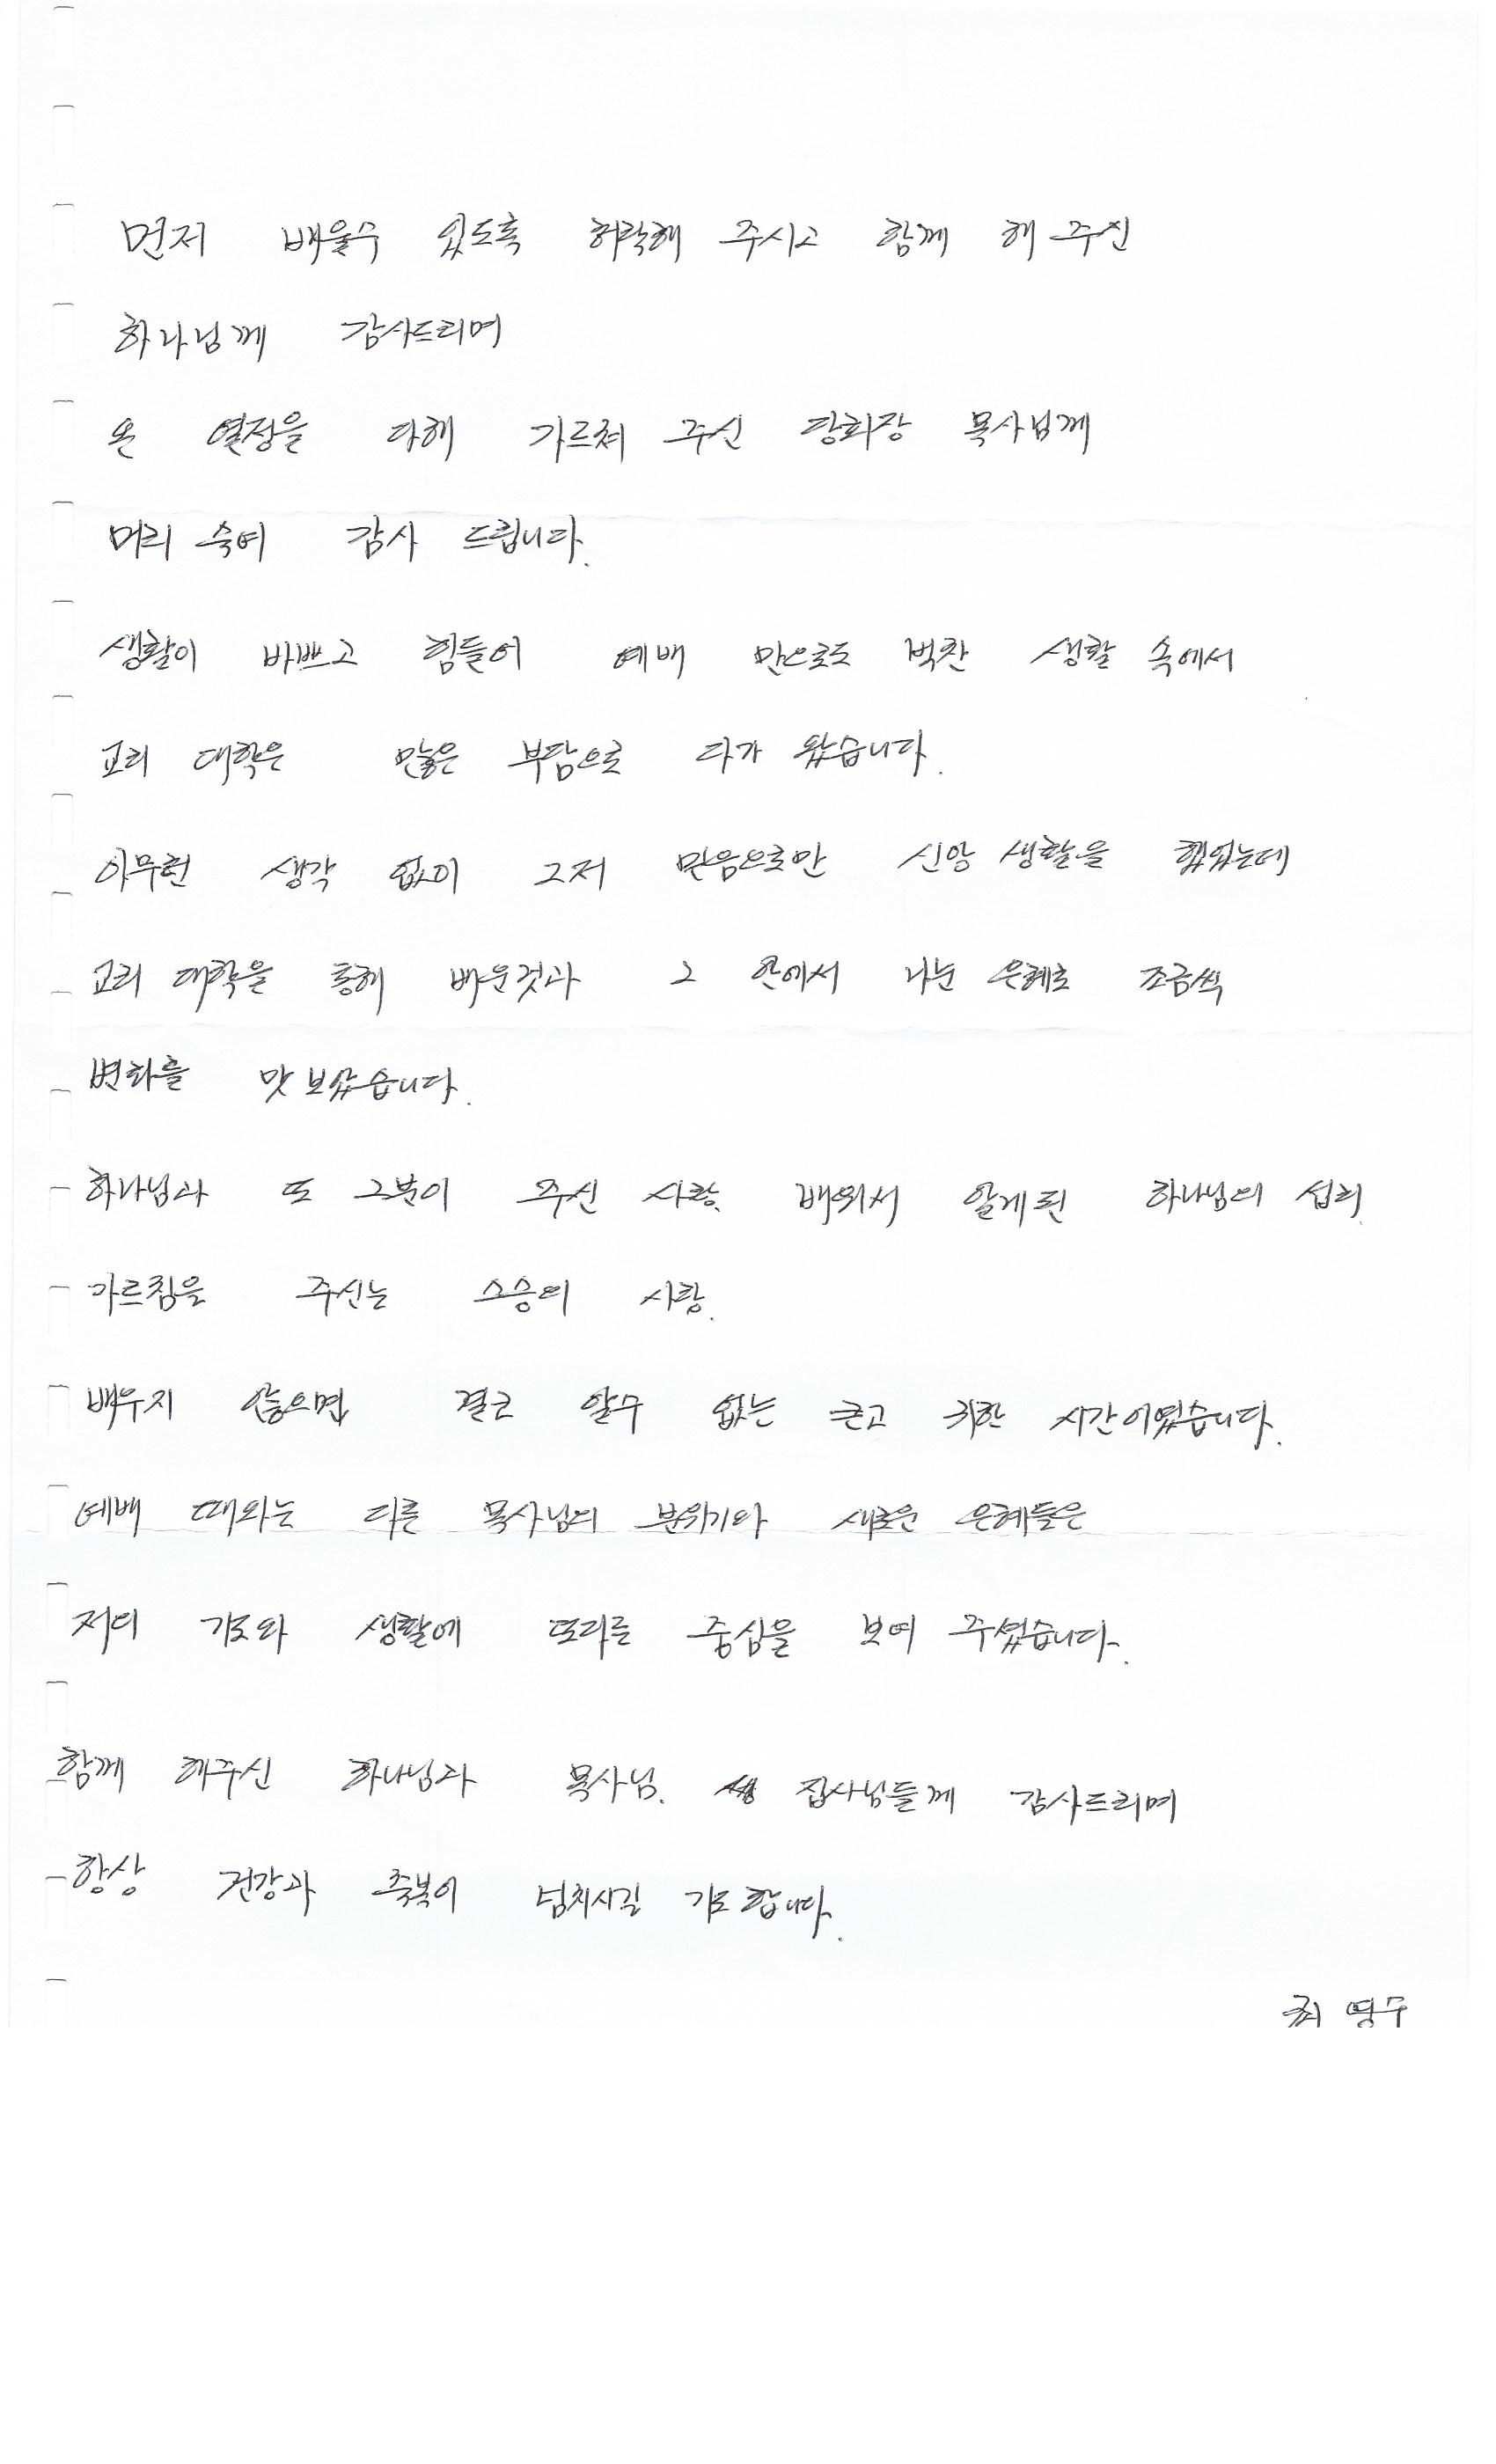 먼저 배울수 있도록 허락해 주시고 함께 해 주신
하나님께 감사드리며
온 열정을 다해 가르쳐 주신 당회장 목사님께
머리 숙여 감사 드립니다.
생활이 바쁘고 힘들어 예배 만으로도 벅찬 생활 속에서
교리 대학은 많은 부담으로 다가 왔습니다.
아무런 생각 없이 그저 믿음으로만 신앙 생활을 했었는데
교리 대학을 통해 배운것과 그 안에서 나눈 은혜로 조금씩
변화를 맛 보았습니다.
하나님과 또 그분이 주신 사랑. 배워서 알게된 하나님의 섭리.
가르침을 주신는 스승의 사랑.
배우지 않으면 결코 알수 없는 큰고 귀한 시간이였습니다.
예배 때와는 다른 목사님의 분위기와 새로운 은혜들은
저의 기도와 생활에 또다른 중심을 보여 주셨습니다.
함께 해주신 하나님과 목사님. 집사님들께 감사드리며
항상 건강과 축복이 넘치시길 기도 합니다.
최 영수